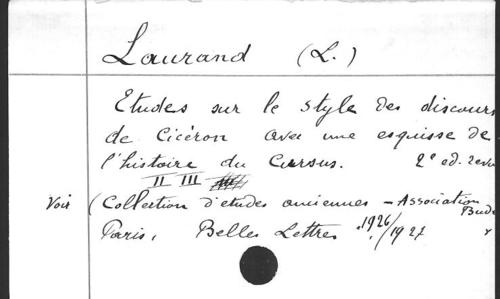 Laurand (L.)
Etudes sur le style des discours
de Cicéron avec une esquisse de
l'histoire du Cursus. 2e ed. revu
II III
Voir (Collection d'études anciennes - Association
Budé
Paris, Belles Lettres. 1926/1927